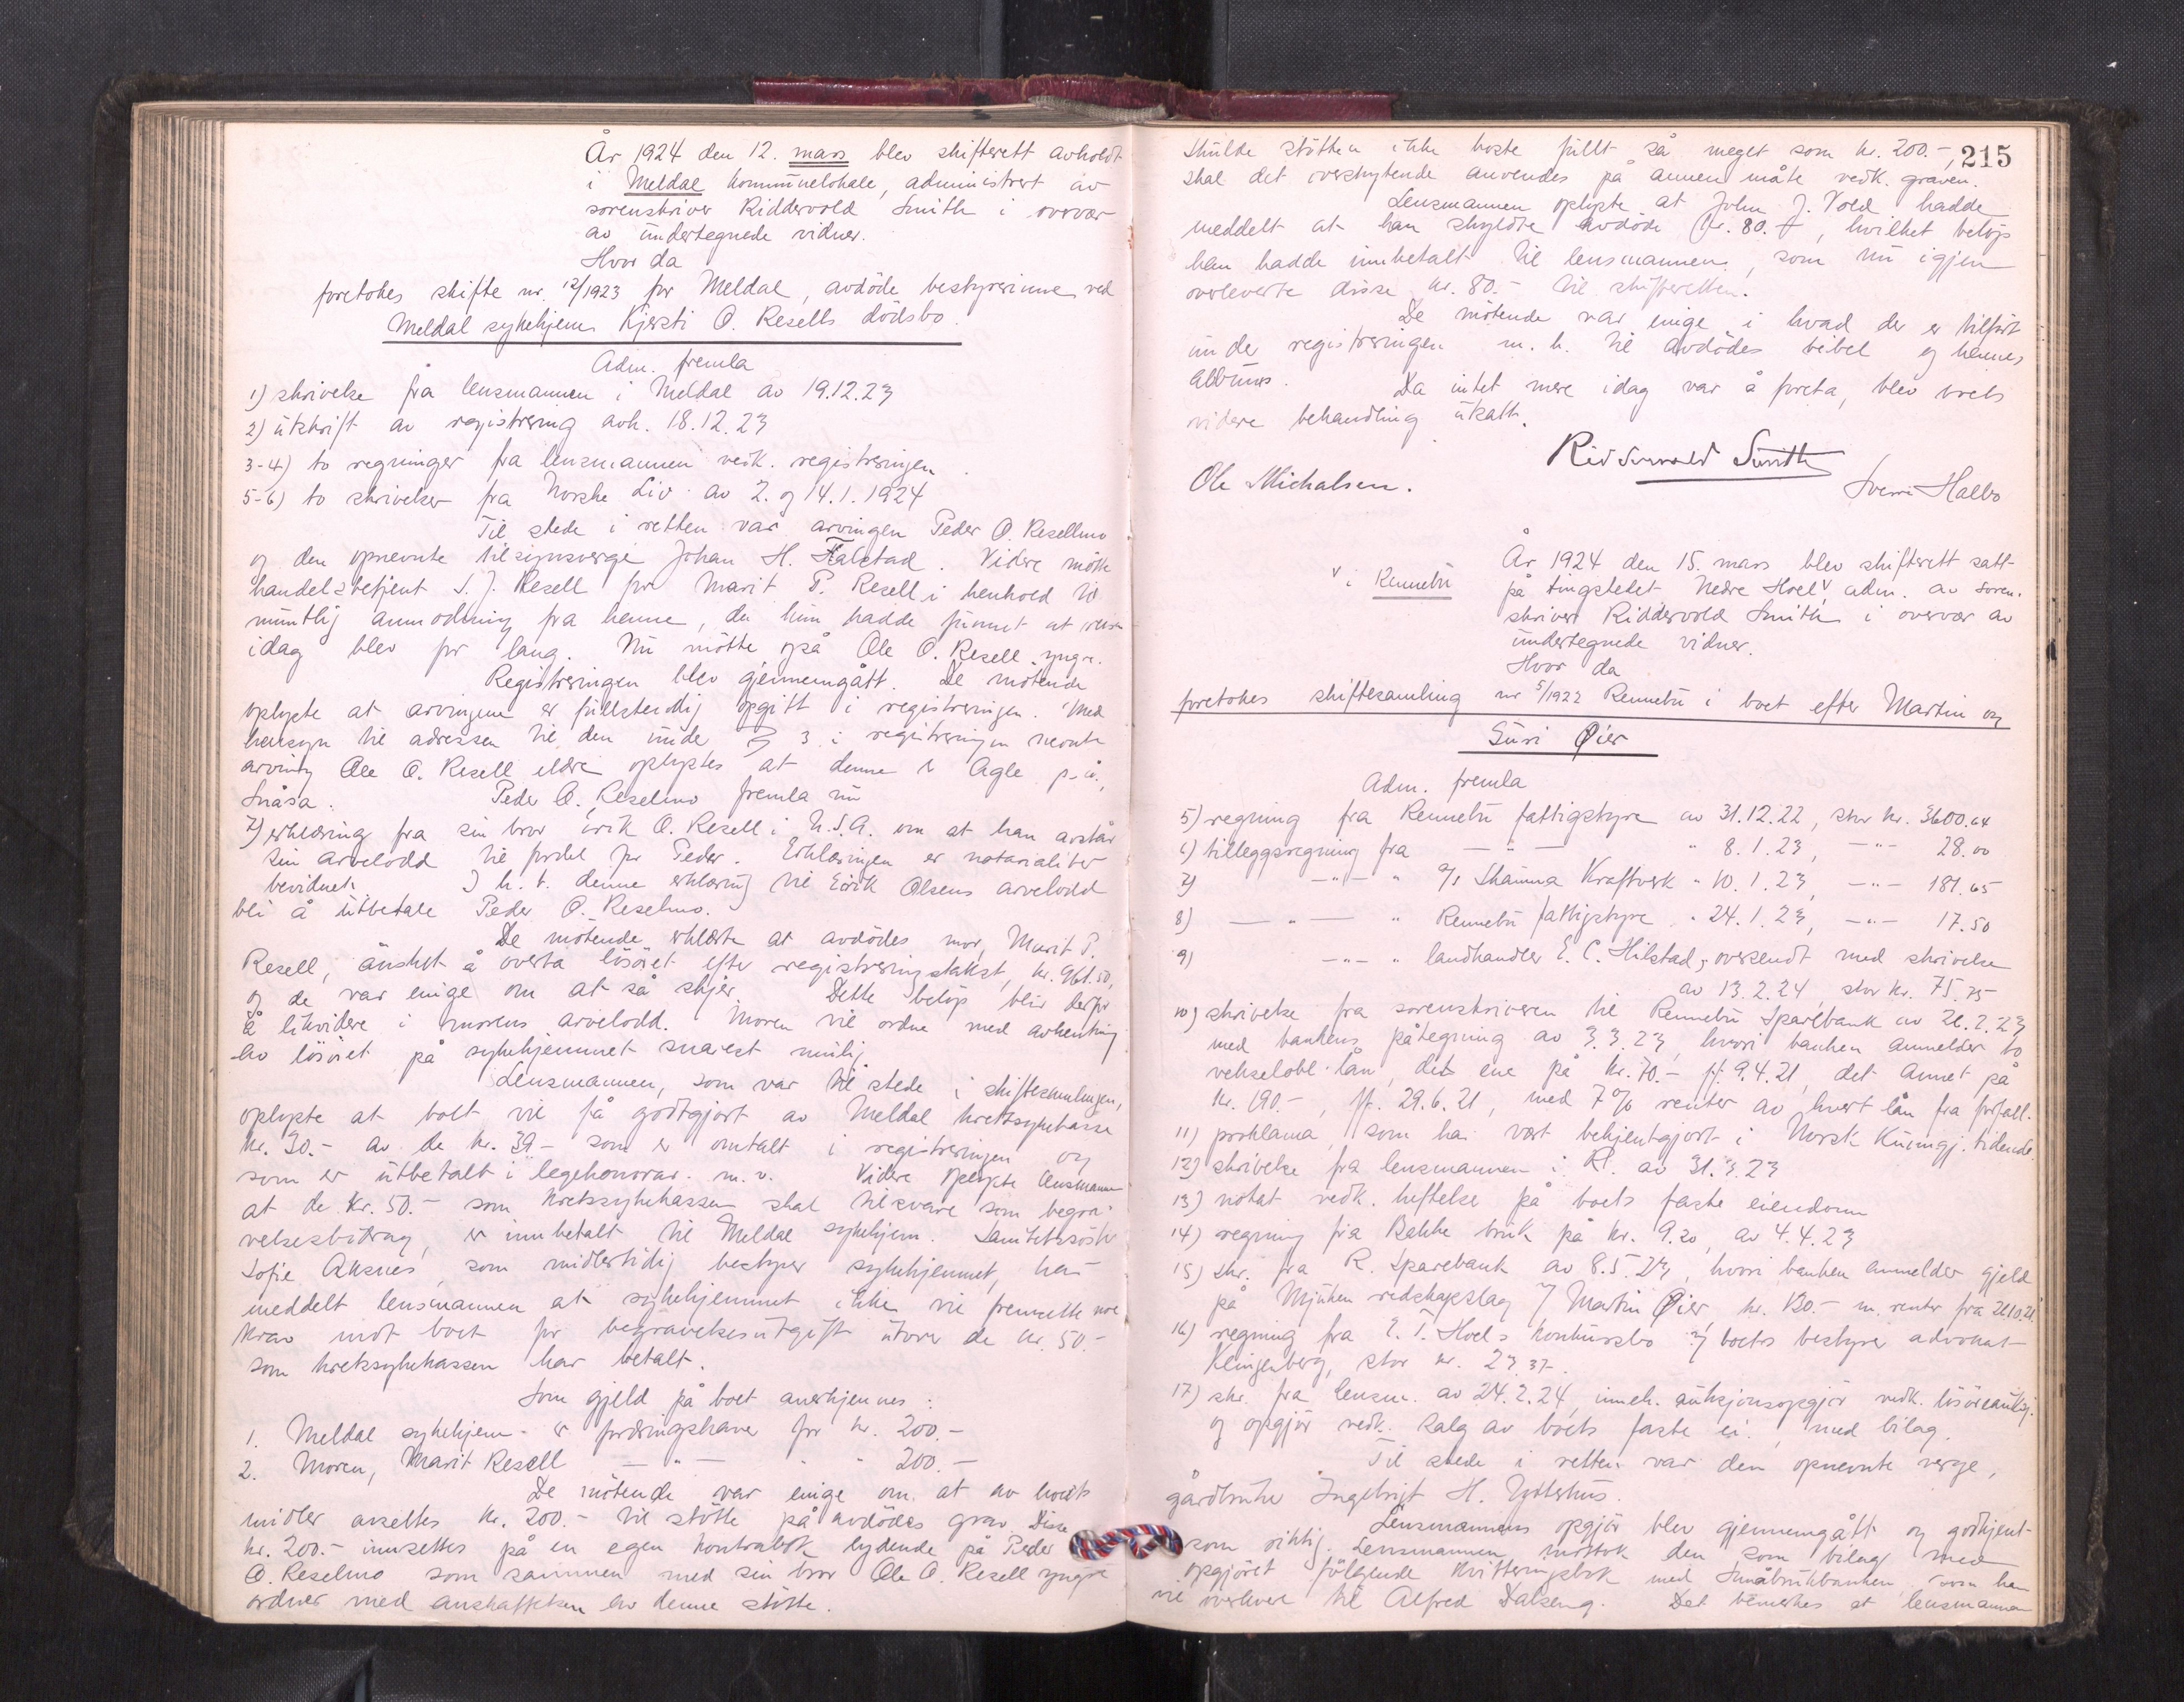 År 1924 den 12. mars blev skifterett avholdt
i Meldal kommunelokale, administrert av
sorenskriver Riddervold Smith i overvær
av undertegnede vidner.
Hvor da
foretokes skifte nr. 12/1923 for Meldal, avdöde bestyrerinne ved
Meldal sykehjem Kjersti O. Resells dödsbo.
Adm. fremla
1) skrivelse fra lensmannen i Meldal av 19.12.23
2) utskrift av registrering avh. 18.12.23
3-4) to regninger fra lensmannen vedk. registreringen.
5-6) to skrivelser fra Norske Liv av 2. og 14.1.1924
Til stede i retten var arvingen Peder O. Resellmo
og den opnevnte tilsynsverge Johan H. Kalstad. Videre mötte
handelsbetjent S. J. Resell for Marit P. Resell i henhold til
muntlig anmodning fra henne, da hun hadde funnet at reisen
idag blev for lang. Nu mötte også Ole O. Resell yngre.
Registreringen blev gjennemgått. De mötende
oplyste at arvingene er fullstendig opgitt i registreringen. Med
hensyn til adressen til den under 3 i registreringen nevnte
arving Ole O. Resell eldre oplystes at denne er Agle p.å.,
Snåsa. Peder O. Reselmo fremla nu
7) erklæring fra sin bror Eirik O. Resell i U.S.A. om at han avstår
sin arvelodd til fordel for Peder. Erklæringen er notarialiter
bevidnet. I h. t. denne erklæring vil Eirik Olsens arvelodd
bli å utbetale Peder O. Reselmo.
De mötende erklærte at avdödes mor, Marit P.
Resell, önsket å overta lösöret efter registreringstakst, kr. 961.50,
og de var enige om at så skjer. Dette belöp blir derfor
å likvidere i morens arvelodd. Moren vil ordne med avhentning
av lösöret på sykehjemmet snarest mulig.
Lensmannen, som var til stede i skiftesamlingen,
oplyste at boet vil få godtgjort av Meldal kretssykekasse
kr. 30.- av de kr. 39.- som er omtalt i registreringen og
som er utbetalt i legehonorar m. v. Videre oplyste lensmannen
at de kr. 50.- som kretssykekassen skal tilsvare som begra-
velsesbidrag, er innbetalt til Meldal sykehjem. Sanitetssöster
Sofie Aksnes, som midlertidig bestyrer sykehjemmet, har
meddelt lensmannen at sykehjemmet ikke vil fremsette noe
krav mot boet for begravelsesutgift utover de kr. 50.-
som kretssykekassen har betalt.
Som gjeld på boet anerkjennes:
1. Meldal sykehjem er fordringshaver for kr. 200.-
2. Moren, Marit Resell — " — " " 200.-
De mötende var enige om at av boets
midler avsettes kr. 200.- til stötte på avdödes grav. Disse
kr. 200.- innsettes på en egen kontrabok lydende på Peder
O. Reselmo som sammen med sin bror Ole O. Resell yngre
ordner med anskaffelsen av denne stötte.
215
Skulde stötten ikke koste fullt så meget som kr. 200.-,
skal det overskytende anvendes på annen måte vedk. graven.
Lensmannen oplyste at John J. Voll hadde
meddelt at han skyldte avdöde kr. 80.-, hvilket belöp
han hadde innbetalt til lensmannen, som nu igjen
overleverte disse kr. 80.- til skifteretten.
De mötende var enige i hvad der er tilfört
under registreringen m. h. til avdödes bibel og hennes
albums. Da intet mere idag var å foreta, blev boets
videre behandling utsatt.
Riddervold Smith
Ole Michalsen. Sverri Halbo
År 1924 den 15. mars blev skifterett satt
v i Rennebu på tingstedet Nedre Hoel v, adm. av soren-
skriver Riddervold Smith i overvær av
undertegnede vidner.
Hvor da
foretokes skiftesamling nr 5/1922 Rennebu i boet efter Martin og
Guri Øier
Adm. fremla
5) regning fra Rennebu fattigstyre av 31.12.22, stor kr. 3600.64
6) tilleggsregning fra — " — " 8.1.23, — " — 28.00
7) — " — " A/S Skamna Kraftverk " 10.1.23, — " — 181.65
8) — " — " Rennebu fattigstyre " 24.1.23, — " — 17.50
9) — " — " landhandler E. C. Hilstad, oversendt med skrivelse
av 13.2.24, stor kr. 75.75
10) skrivelse fra sorenskriveren til Rennebu Sparebank av 26.2.23
med bankens påtegning av 3.3.23, hvori banken anmelder to
vekselobl. lån, det ene på kr. 70.- ff. 9.4.21, det annet på
kr. 190.-, ff. 29.6.21, med 7% renter av hvert lån fra forfall.
11) proklama, som har vært bekjentgjort i Norsk Kunngj. tidende.
12) skrivelse fra lensmannen i R. av 31.3.23
13) notat vedk. heftelse på boets faste eiendom
14) regning fra Bakke bruk på kr. 9.20, av 4.4.23
15) skr. fra R. Sparebank av 8.5.23, hvori banken anmelder gjeld
på Mjuken redskapslag v/ Martin Øier, kr. 130.- m. renter fra 26.10.21.
16) regning fra E. T. Hoels konkursbo v/ boets bestyrer advokat
Klingenberg, stor kr. 23.37.
17) skr. fra lensm. av 24.2.24, inneh. auksjonsopgjör vedk. lösöreauksj.
og opgjör vedk. salg av boets faste ei., med bilag.
Til stede i retten var den opnevnte verge,
gårdbruker Ingebrigt H. Ytterhus.
Lensmannens opgjör blev gjennemgått og godkjent
som riktig. Lensmannen mottok den som bilag med
opgjöret fölgende kvitteringsbok med Småbrukbanken, som han
vil overlevere til Alfred Dalseng. Det bemerkes at lensmannen